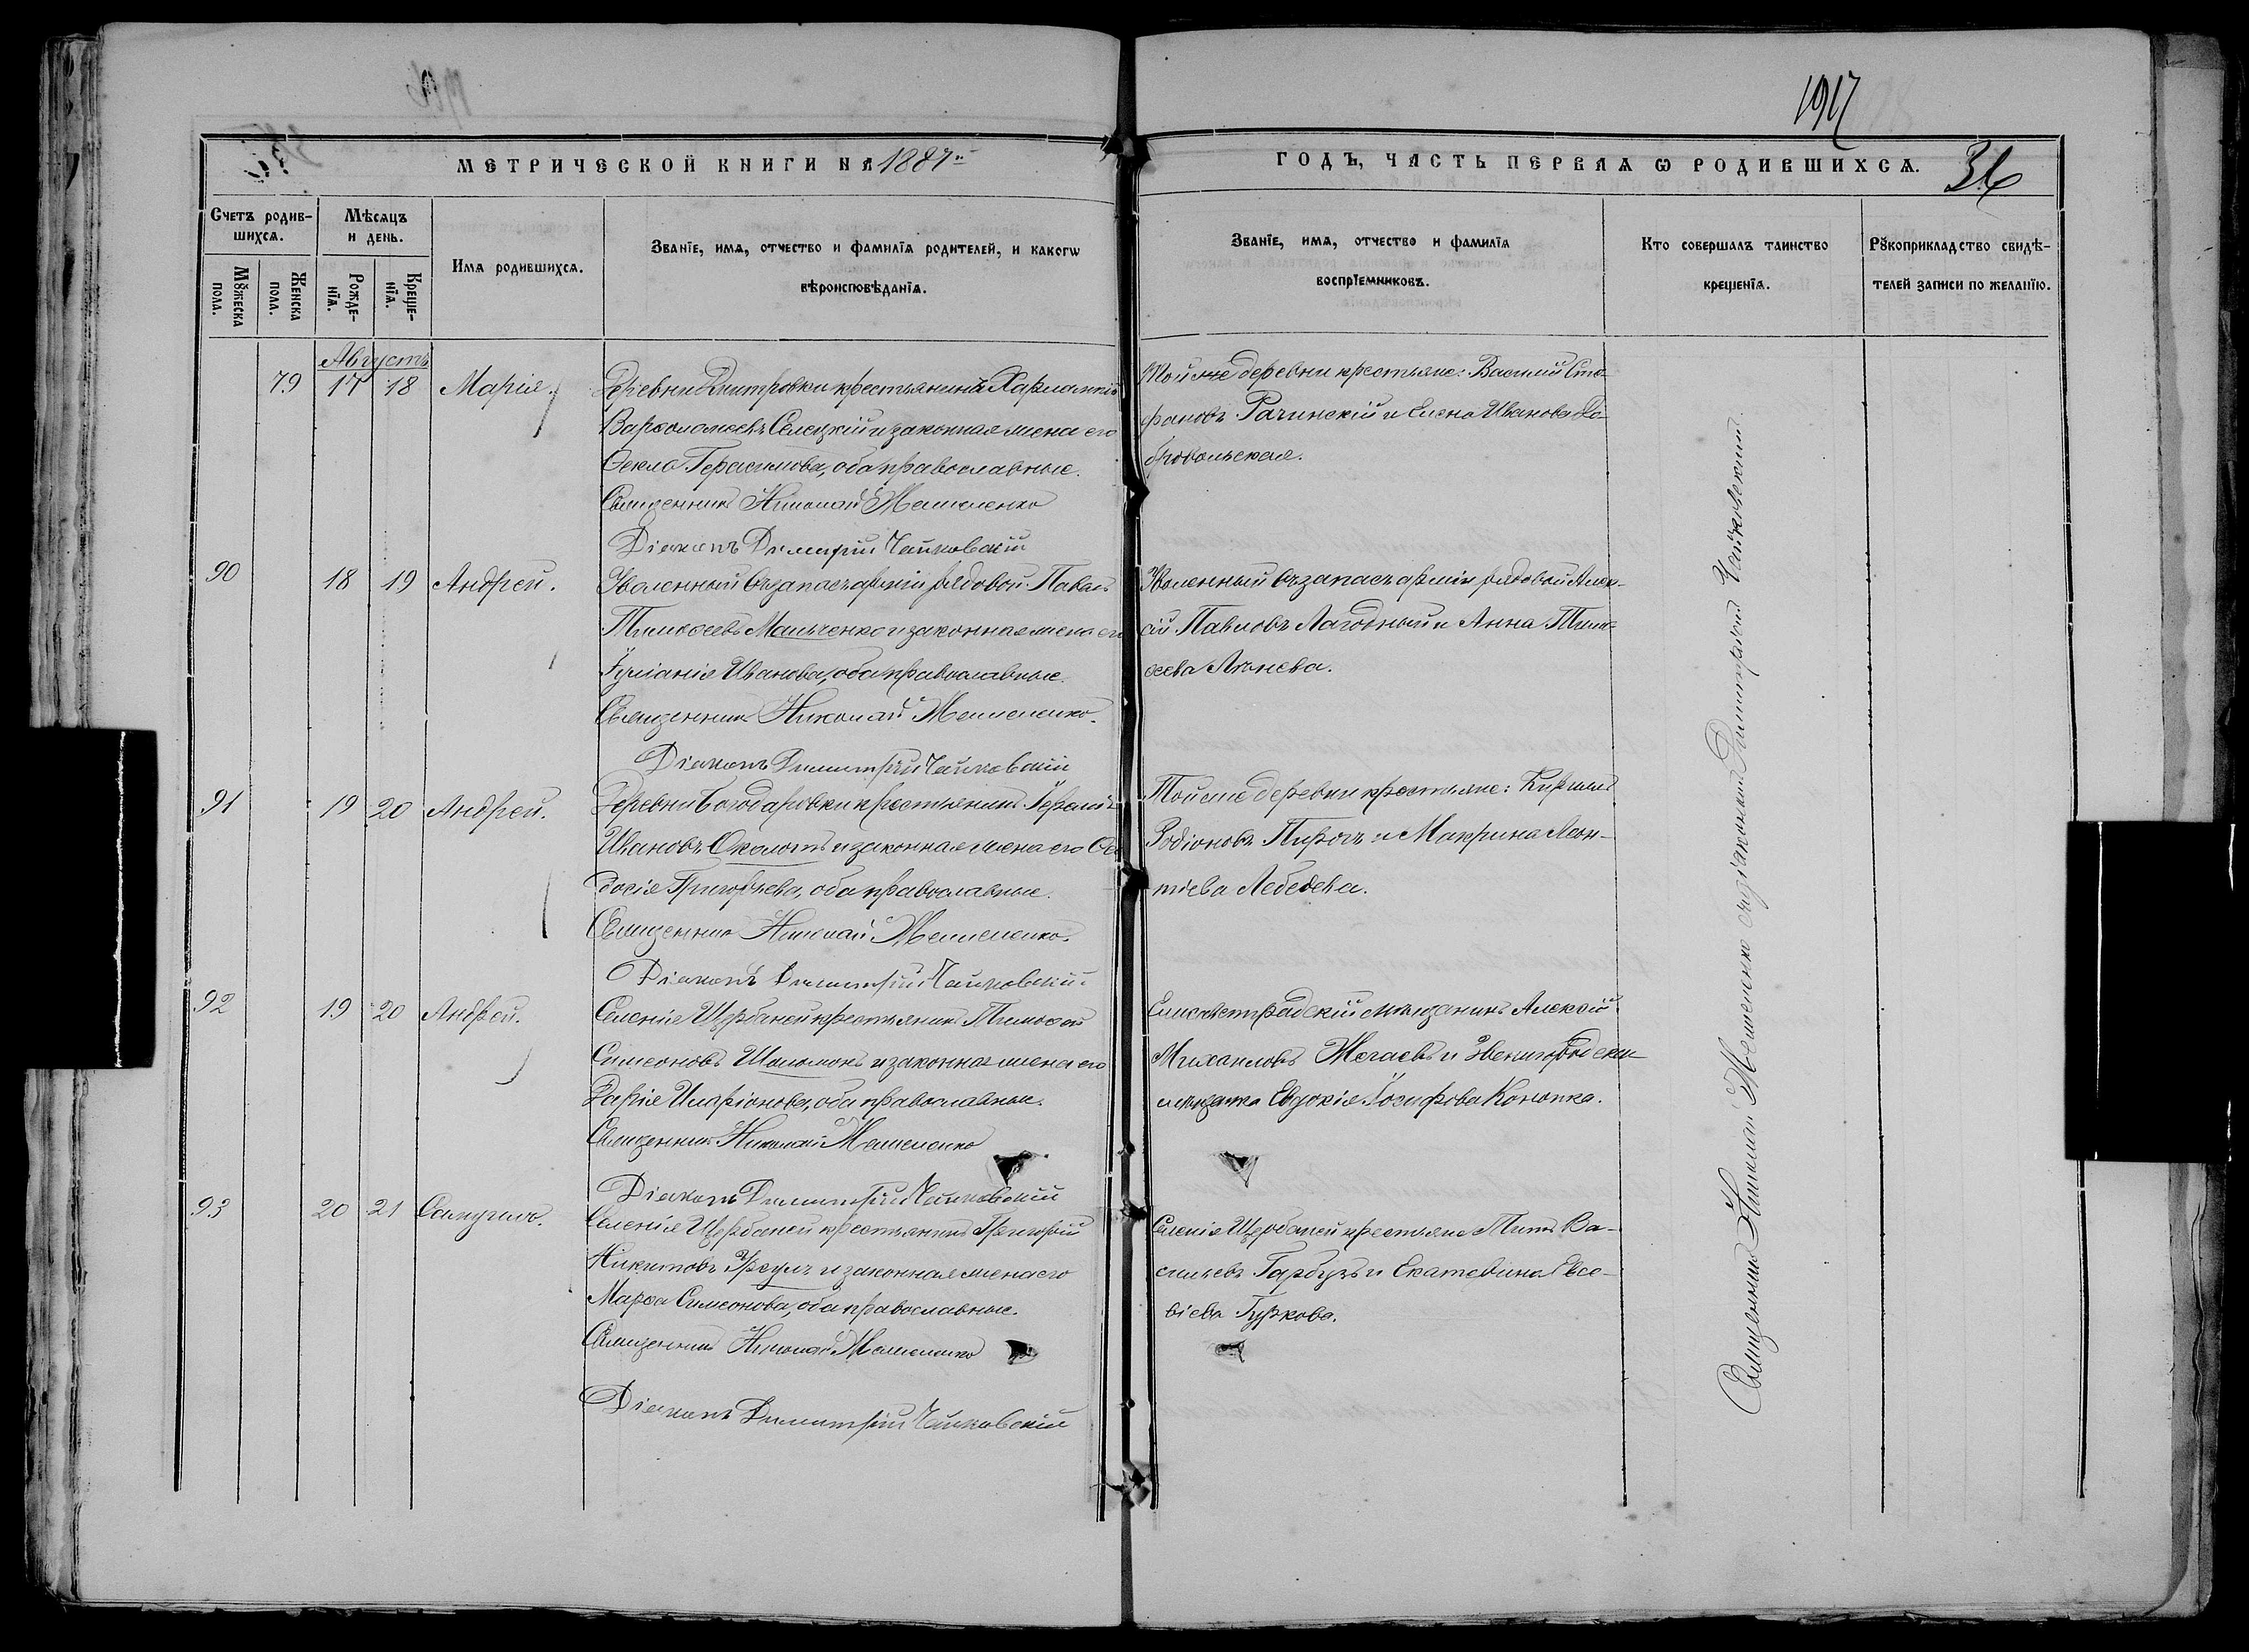 1917
36
МЕТРИЧЕСКОЙ КНИГИ НА 1887й
ГОДЪ, ЧАСТЬ ПЕРВАЯ Ѡ РОДИВШИХСѦ.
Счетъ родив-
шихсѧ.
Мꙋжеска
пола.
Женска
пола.
Мѣсѧцъ
и день.
Рожде-
нїѧ.
Креще-
нїѧ.
Имѧ родившихсѧ.
Званїе, имѧ, отчество и фамилїѧ родителей, и какогѡ
вѣроисповѣданїѧ.
Званїе, имѧ, отчество и фамилїѧ
воспрїемниковъ.
Кто совершалъ таинство
крещенїѧ.
Рꙋкоприкладство свидѣ-
телей записи по желанїю.
Августъ
79 17 18 Марія.
Деревни Дмитровки крестьянинъ Харлампій
Варѳоломеевъ Селецкій и законная жена его
Ѳекла Герасимова, оба православные.
Священникъ Николай Мешененко
Діаконъ Димитрій Чайковскій
Той же деревни крестьяне: Василій Сте-
фановъ Рачинскій и Елена Иванова До-
бровольская.
90 18 19 Андрей.
Уволенный въ запасъ арміи рядовой Павелъ
Тимоѳеевъ Мальченко и законная жена его
Іуліанія Иванова, оба православные.
Священникъ Николай Мешененко.
Діаконъ Димитрій Чайковскій
Уволенный въ запасъ арміи рядовой Алек-
сій Павловъ Лагодный и Анна Тимо-
ѳеева
91 19 20 Андрей.
Деревни Богодаровки крестьянинъ Герасимъ
Ивановъ Околотъ и законная жена его Ѳео
досія Григорьева, оба православные.
Священникъ Николай Мешененко.
Діаконъ Димитрій Чайковскій.
Той же деревни крестьяне: Кириллъ
Родіоновъ Пирогъ и Макрина Леон-
тіева Лебедева.
92 19 20 Андрей.
Селенія Щербаней крестьянинъ Тимоѳей
Симеоновъ Шоломокъ и законная жена его
Дарія Иларіонова, оба православные.
Священникъ Николай Мешененко
Діаконъ Димитрій Чайковскій
Елисаветградскій мѣщанинъ Алексій
Михаиловъ Мечаевъ и Звенигородская
мѣщанка Евдокія Іосифова Конопка.
93 20 21 Самуилъ.
Селенія Щербаней крестьянинъ Григорій
Никитовъ Урсулъ и законная жена его
Марѳа Симеонова, оба православные.
Священникъ Николай Мешененко
Діаконъ Димитрій Чайковскій
Селенія Щербаней крестьяне Титъ Ва-
сильевъ Гарбузъ и Екатерина Евсе-
віева Гуркова.
Священникъ Николай Мешененко съ діакономъ Димитріемъ Чайковскимъ.